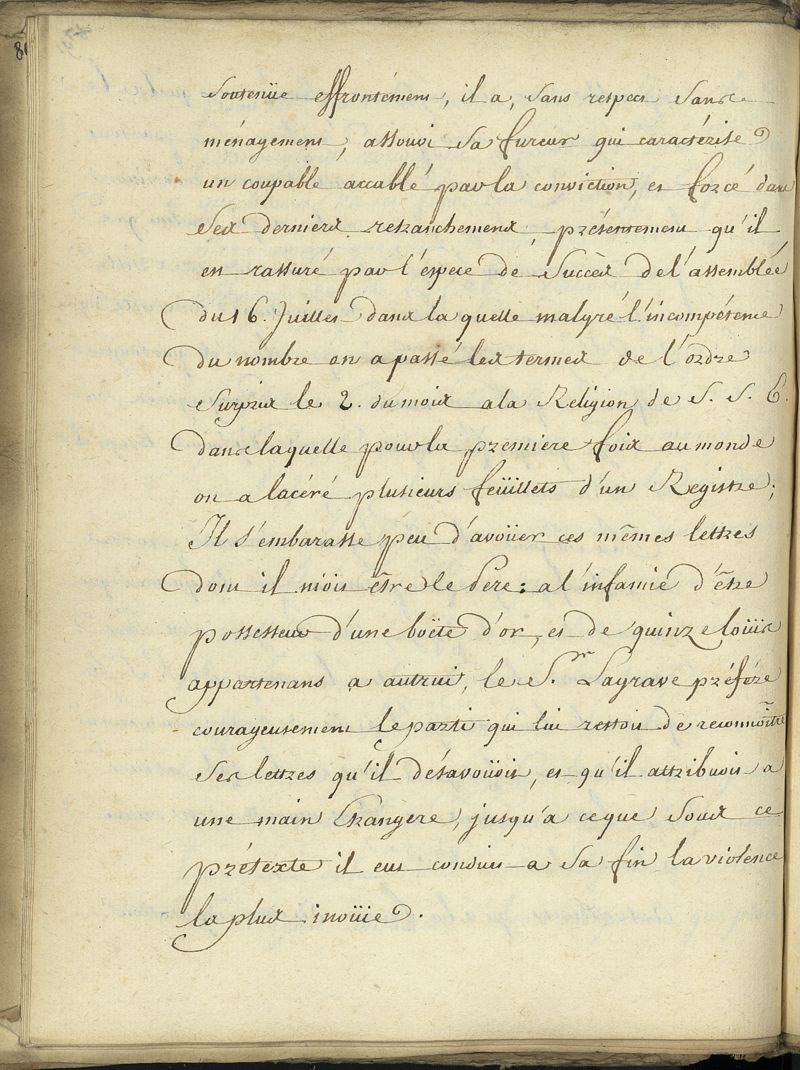 80
soutenüe effrontément, il a, sans respect sans
ménagement, assouvi sa fureur qui caractérise
un coupable accablé par la conviction, et forcé dans
ses derniers retranchemens, présentement qu'il
est rassuré par l'espece de succès de l'assemblée
du 16. Juillet dans laquelle malgré l'incompétence
du nombre on a passé les termes de l'ordre
surpris le 2. du mois a la Religion de S. S. E.
dans laquelle pour la premiere fois au monde
on a lacéré plusieurs feüillets d'un Registre;
Il s'embarasse peu d'avoüer ces mêmes lettres
dont il niois être le Pere: a l'infamie d'être
possesseur d'une boëte d'or, et de quinze loüis
appartenans a autrui, le S.r Lagrave préfére
courageusement le parti qui lui restoit de reconnoître
ses lettres qu'il désavoüoit, et qu'il attribuoit a
une main Etrangere, jusqu'a ceque sous ce
prétexte il eut conduit a sa fin la violence
la plus inoüie.